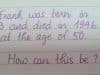 Frank was born in
3 and died in 1996
at the age of 50.
How can this be?